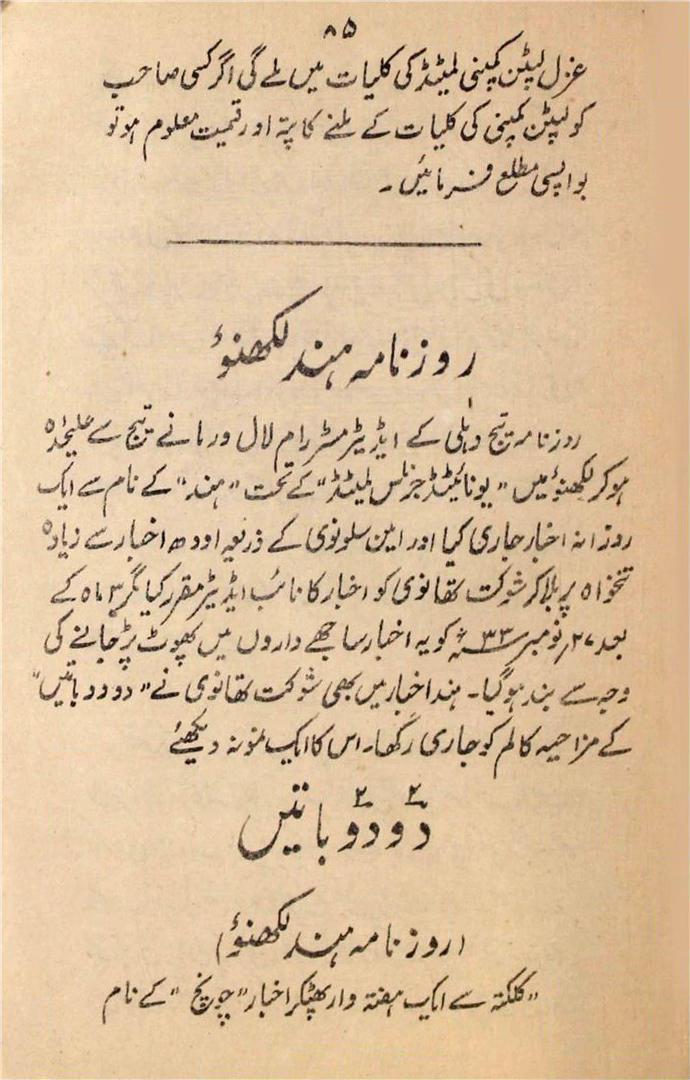 ۸۵
غزل لپٹن کمپنی لمیٹڈ کی کلیات میں ملے گی اگر کسی صاحب
کو لپٹن کمپنی کی کلیات کے ملنے کا پتہ اور قیمت معلوم ہو تو
بواپسی مطلع فرمائیں۔
روزنامہ ہند لکھنؤ
روزنامہ تیج دہلی کے ایڈیٹر مسٹر رام لال ورما نے تیج سے علیحدہ
ہو کر لکھنؤ میں "یونائیٹڈ جرنلس لمیٹڈ" کے تحت "ہند" کے نام سے ایک
روزانہ اخبار جاری کیا اور امین سلونوی کے ذریعہ اودھ اخبار سے زیادہ
تنخواہ پر بلا کر شوکت تھانوی کو اخبار کا نائب ایڈیٹر مقرر کیا مگر ۳ ماہ کے
بعد ۲۷؍ نومبر ۳۳ء کو یہ اخبار ساجھے داروں میں پھوٹ پڑ جانے کی
وجہ سے بند ہو گیا۔ ہند اخبار میں بھی شوکت تھانوی نے "دو دو باتیں"
کے مزاحیہ کالم کو جاری رکھا۔ اس کا ایک نمونہ دیکھئے
دو دو باتیں
(روزنامہ ہند لکھنؤ)
"کلکتہ سے ایک ہفتہ وار پھٹکر اخبار "چونچ" کے نام